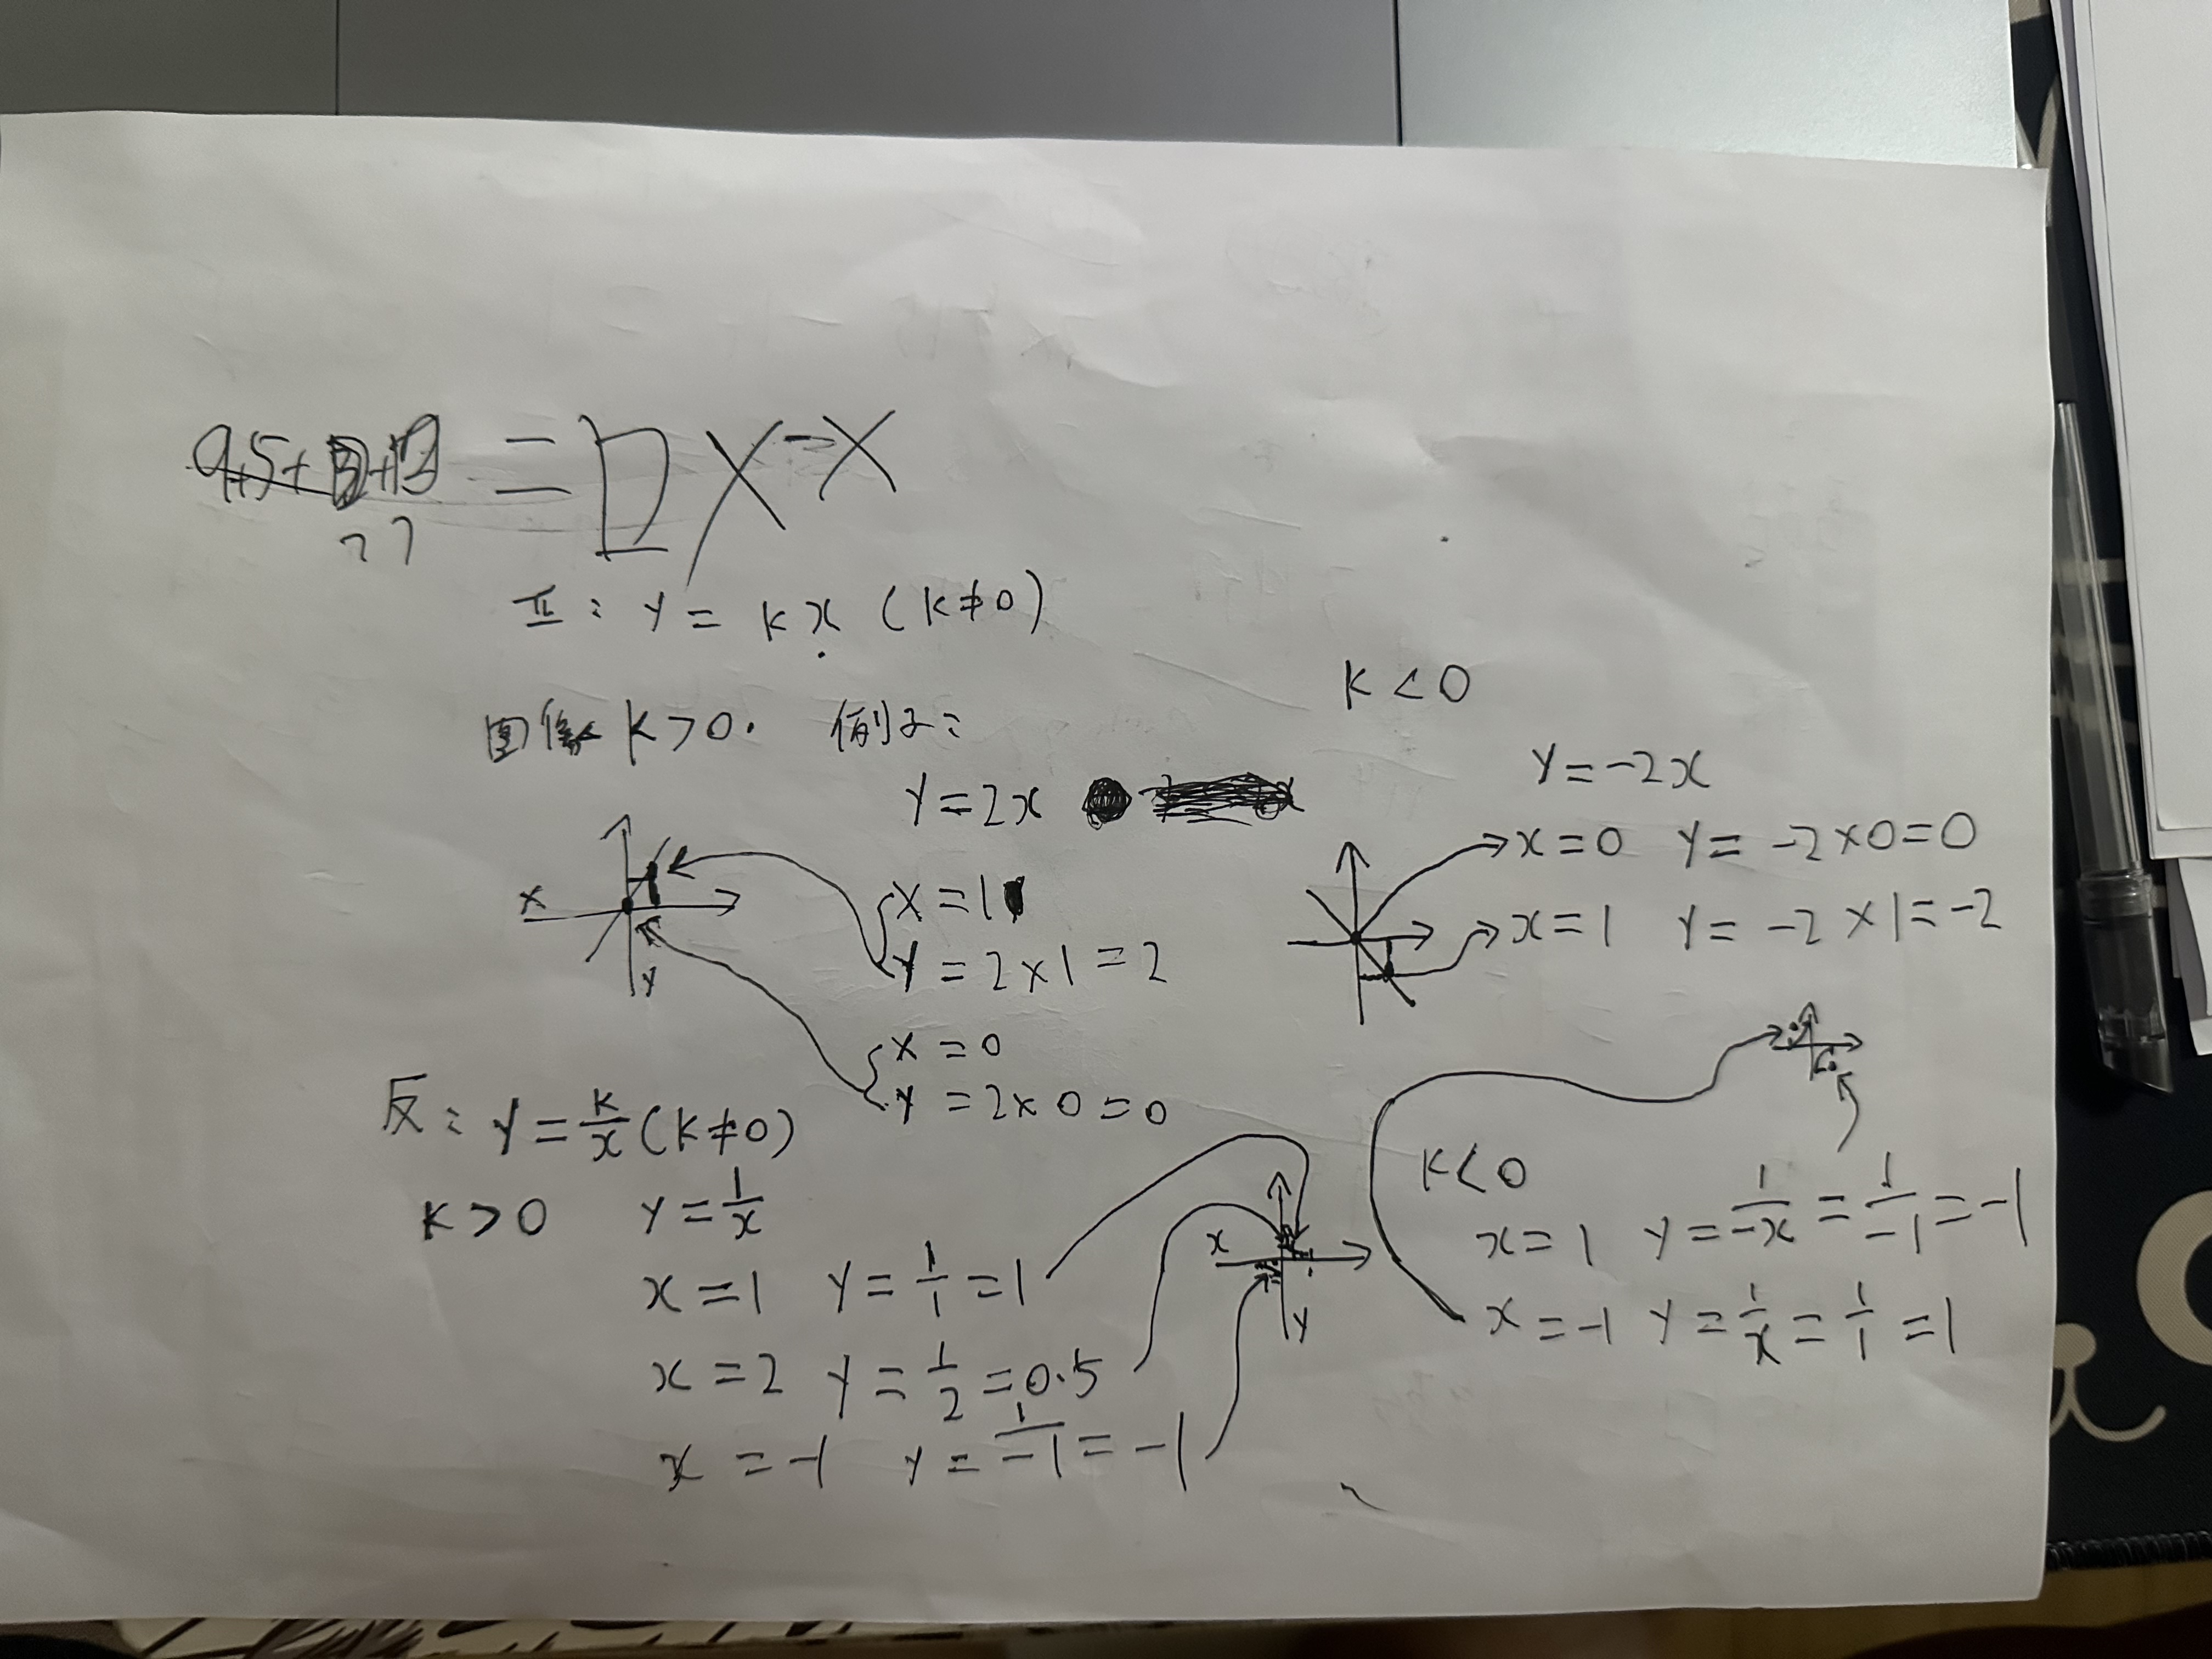 = D X - X
正: y = kx (k≠0)
图像 k>0. 例子:
y=2x
x
y
x=1
y=2×1=2
x=0
y=2×0=0
k<0
y=-2x
x=0 y=-2×0=0
x=1 y=-2×1=-2
反: y=k/x (k≠0)
k>0 y=1/x
x=1 y=1/1=1
x=2 y=1/2=0.5
x=-1 y=1/-1=-1
x
y
k<0
x=1 y=1/-x=1/-1=-1
x=-1 y=1/x=1/1=1